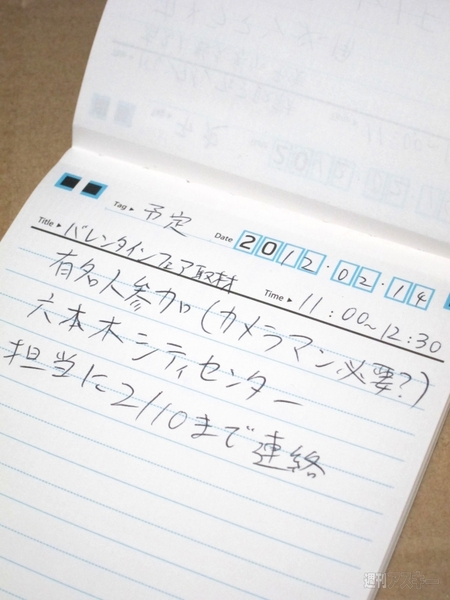 Tag▸ 予定
Date 2012.02.14
Title▸ バレンタインフェア取材
Time▸ 11:00~12:30
有名人参加(カメラマン必要?)
六本木シティセンター
担当に2/10まで連絡
週刊